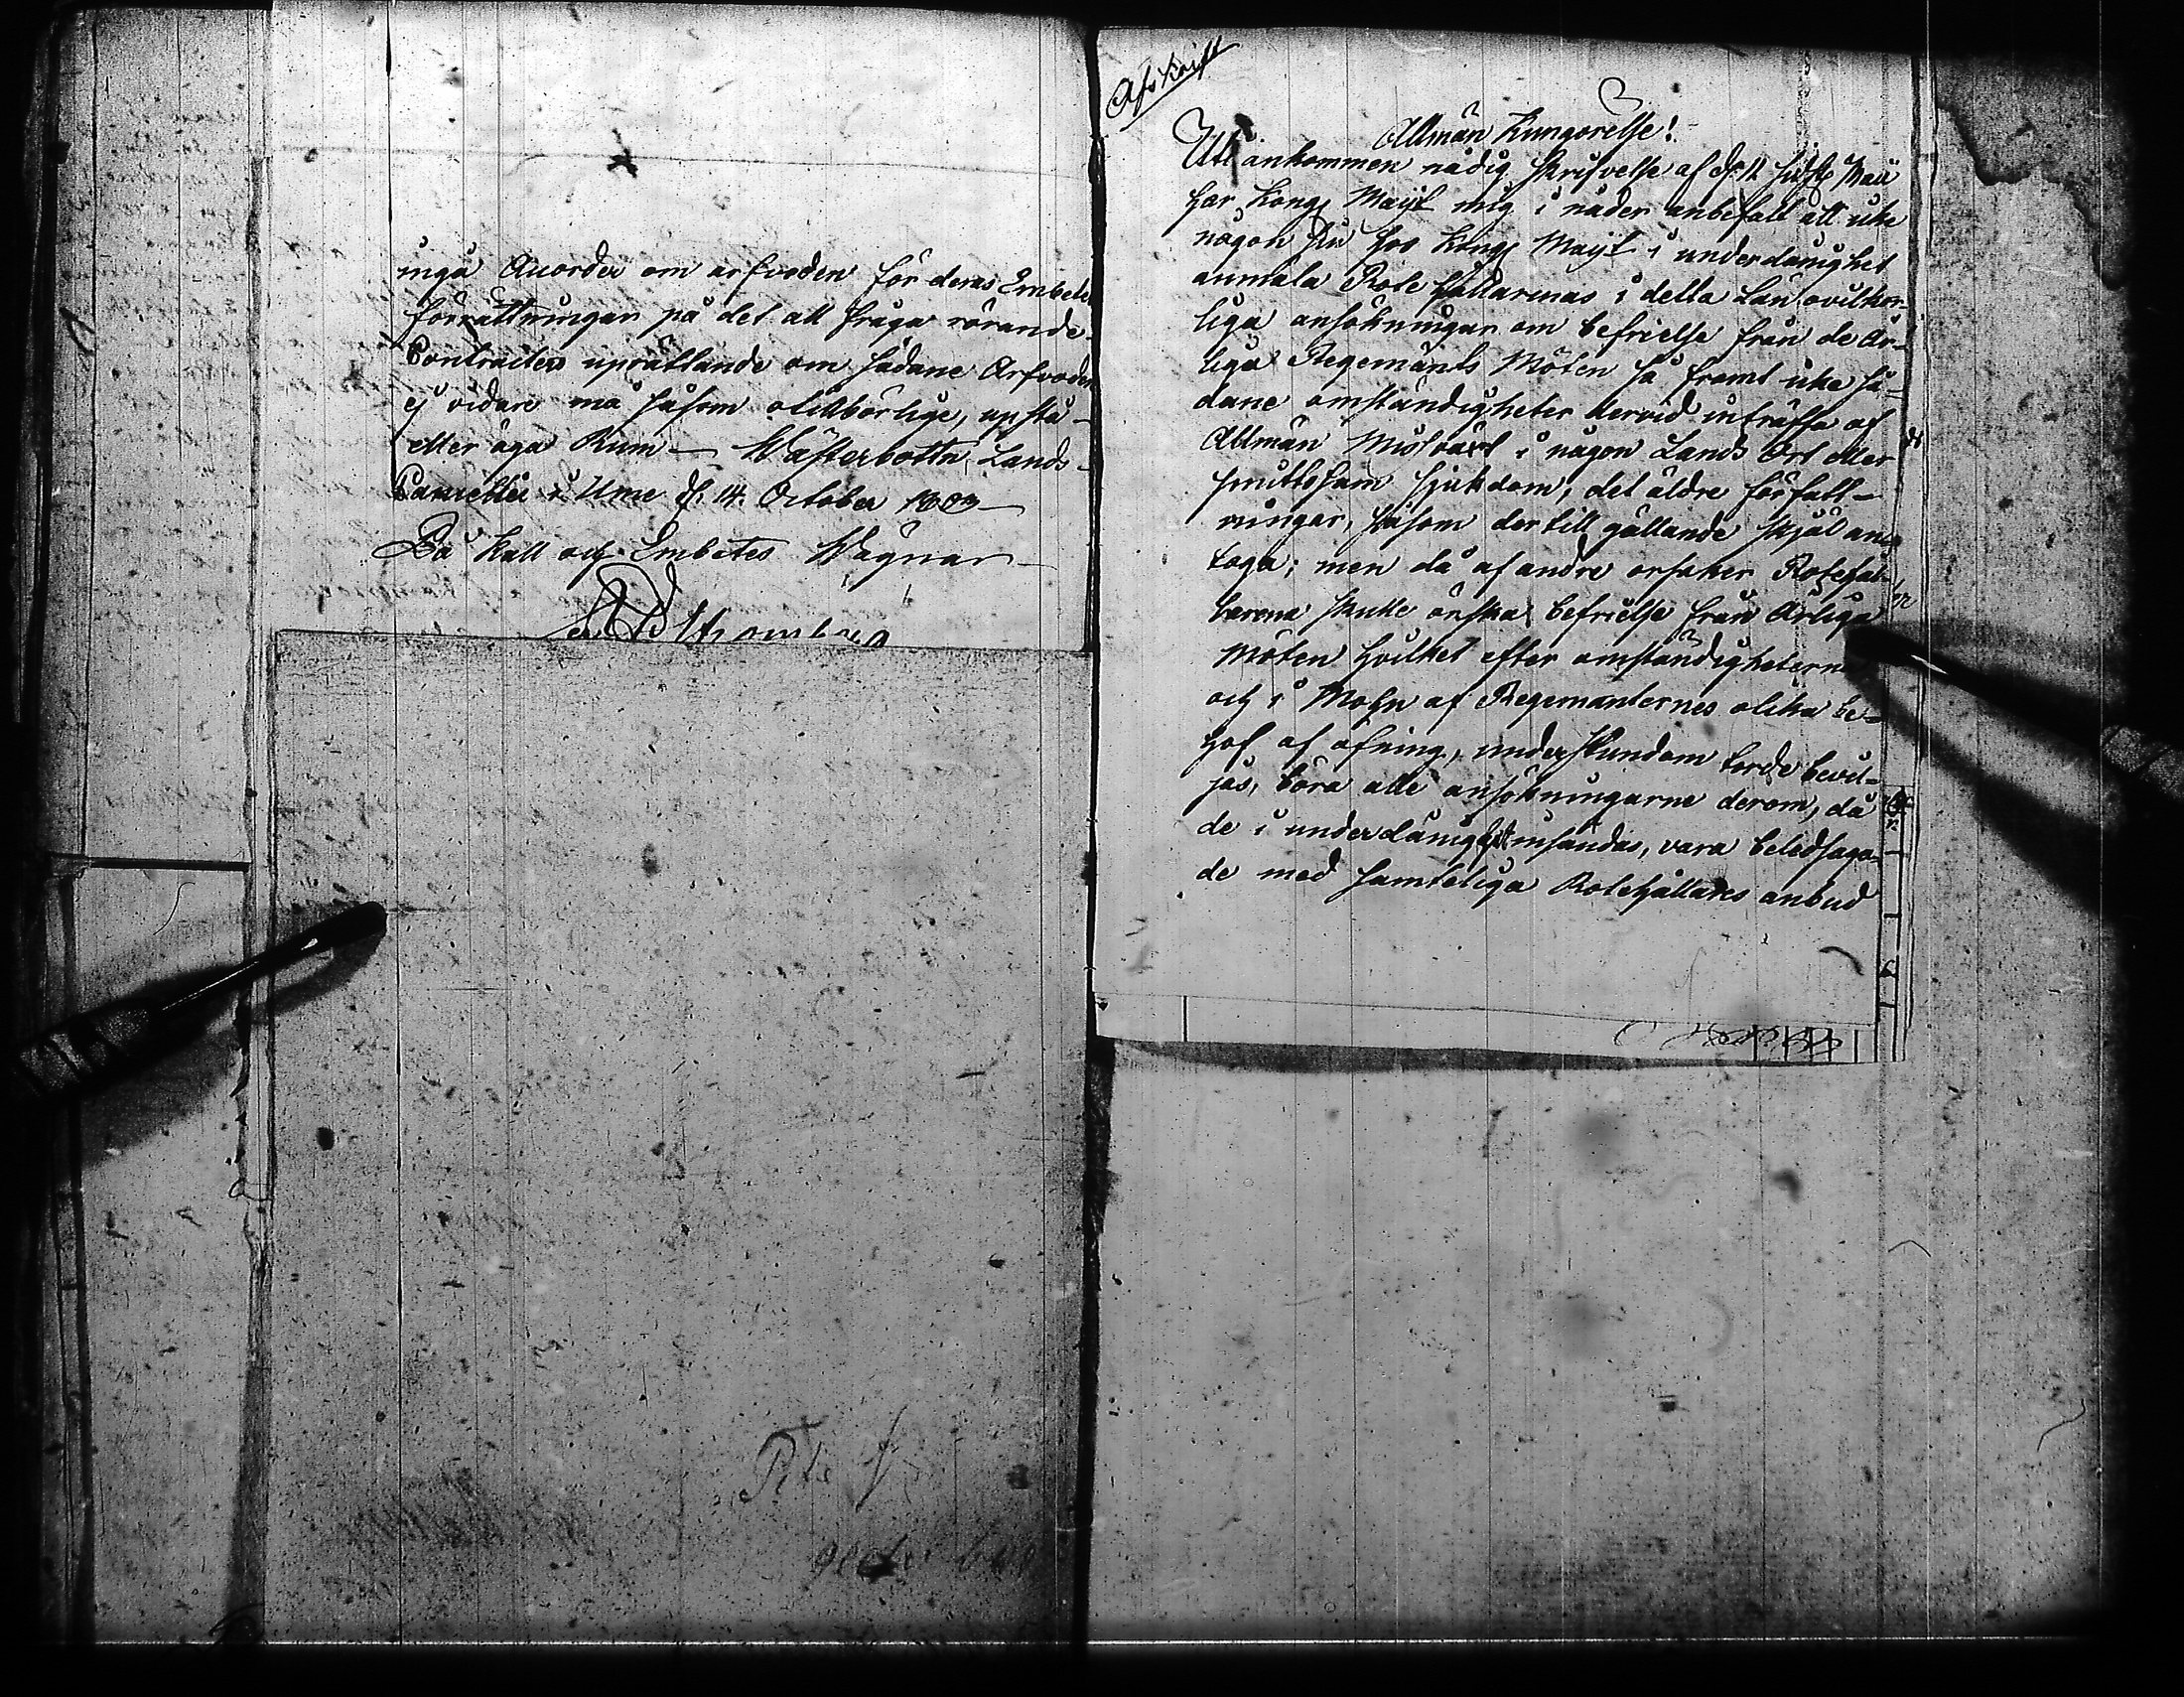 inga Accorder om arfvoden för deras Embets
förrättningar på det att fråga rörande
Contracters uprättande om sådane Arfvoden
ej vidare må såsom otillbörlige, upstå
eller äga Rum — Wästerbottn Lands-
Cancellie i Umeå d. 14 October 1803 —
På Kall och Embetes Wägnar —
Stromberg
Afskrift
Allmän Kungörelse!
Uti ankommen nådig skrifvelse af d. 11 sidstl. Maii
har Kongl Maijt mig i nåder anbefalt att icke
någon sin hos Kongl Maijt i underdånighet
anmäla Rote hållarenas i detta Län ovilkor-
liga ansökningar om befrielse från de År-
liga Regements Möten så framt icke så-
dane omständigheter dervid inträffa af
Allmän Misväxt i någon Lands Ort eller
smittosam sjukdom, det äldre författ-
ningar, såsom der till gällande skjäl an-
taga; men då af andre orsaker Rotehål-
larena skulle önska befrielse från Årliga
Möten hvilket efter omständigheterne
och i Mohn af Regementernes olika be-
hof af öfning, understundom torde bevil-
jas, böra alle ansökningarne derom, då
de i underdånighet insändas, vara beledsaga-
de med samteliga Rotehållares anbud